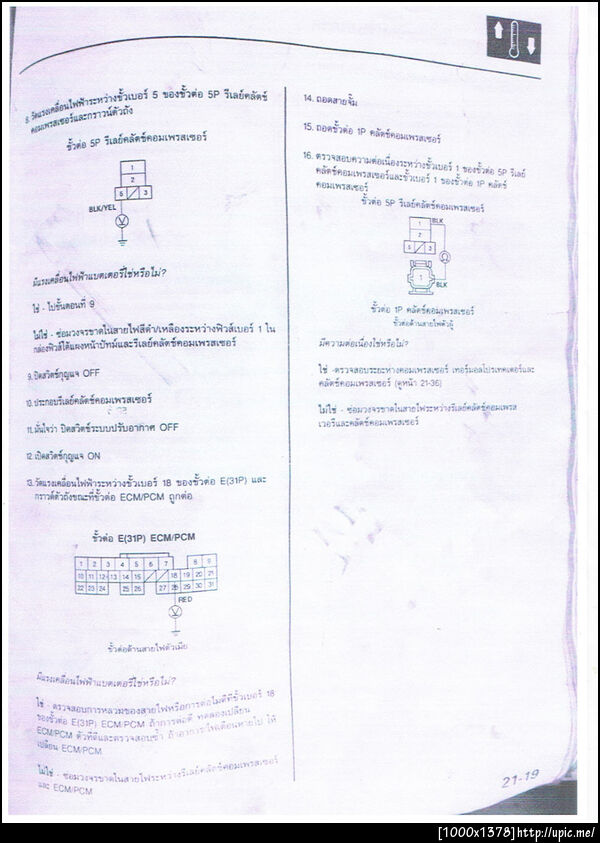 8. วัดแรงเคลื่อนไฟฟ้าระหว่างขั้วเบอร์ 5 ของขั้วต่อ 5P รีเลย์คลัตช์
คอมเพรสเซอร์และกราวน์ตัวถัง
ขั้วต่อ 5P รีเลย์คลัตช์คอมเพรสเซอร์
1
2
5 3
BLK/YEL
V
มีแรงเคลื่อนไฟฟ้าแบตเตอรี่ใช่หรือไม่?
ใช่ - ไปขั้นตอนที่ 9
ไม่ใช่ - ซ่อมวงจรขาดในสายไฟสีดำ/เหลืองระหว่างฟิวส์เบอร์ 1 ใน
กล่องฟิวส์ใต้แผงหน้าปัทม์และรีเลย์คลัตช์คอมเพรสเซอร์
9. ปิดสวิตช์กุญแจ OFF
10. ประกอบรีเลย์คลัตช์คอมเพรสเซอร์
11. มั่นใจว่า ปิดสวิตช์ระบบปรับอากาศ OFF
12. เปิดสวิตช์กุญแจ ON
13. วัดแรงเคลื่อนไฟฟ้าระหว่างขั้วเบอร์ 18 ของขั้วต่อ E(31P) และ
กราวด์ตัวถังขณะที่ขั้วต่อ ECM/PCM ถูกต่อ
ขั้วต่อ E(31P) ECM/PCM
1 2 3 4 5 6 7 8 9
10 11 12 13 14 15 18 19 20 21
22 23 24 25 26 27 28 29 30 31
RED
V
ขั้วต่อด้านสายไฟตัวเมีย
มีแรงเคลื่อนไฟฟ้าแบตเตอรี่ใช่หรือไม่?
ใช่ - ตรวจสอบการหลวมของสายไฟหรือการต่อไม่ดีที่ขั้วเบอร์ 18
ของขั้วต่อ E(31P) ECM/PCM ถ้าการต่อดี ทดลองเปลี่ยน
ECM/PCM ตัวที่ดีและตรวจสอบซ้ำ ถ้าอาการ/ไฟเตือนหายไป ให้
เปลี่ยน ECM/PCM
ไม่ใช่ - ซ่อมวงจรขาดในสายไฟระหว่างรีเลย์คลัตช์คอมเพรสเซอร์
และ ECM/PCM
14. ถอดสายจั๊ม
15. ถอดขั้วต่อ 1P คลัตช์คอมเพรสเซอร์
16. ตรวจสอบความต่อเนื่องระหว่างขั้วเบอร์ 1 ของขั้วต่อ 5P รีเลย์
คลัตช์คอมเพรสเซอร์และขั้วเบอร์ 1 ของขั้วต่อ 1P คลัตช์
คอมเพรสเซอร์
ขั้วต่อ 5P รีเลย์คลัตช์คอมเพรสเซอร์
1
BLK
2
5 3
Ω
1
BLK
ขั้วต่อ 1P คลัตช์คอมเพรสเซอร์
ขั้วต่อด้านสายไฟตัวผู้
มีความต่อเนื่องใช่หรือไม่?
ใช่ -ตรวจสอบระยะห่างคอมเพรสเซอร์ เทอร์มอลโปรเทคเตอร์และ
คลัตช์คอมเพรสเซอร์ (ดูหน้า 21-36)
ไม่ใช่ - ซ่อมวงจรขาดในสายไฟระหว่างรีเลย์คลัตช์คอมเพรส
เซอร์และคลัตช์คอมเพรสเซอร์
21-19
[1000x1378]http://upic.me/